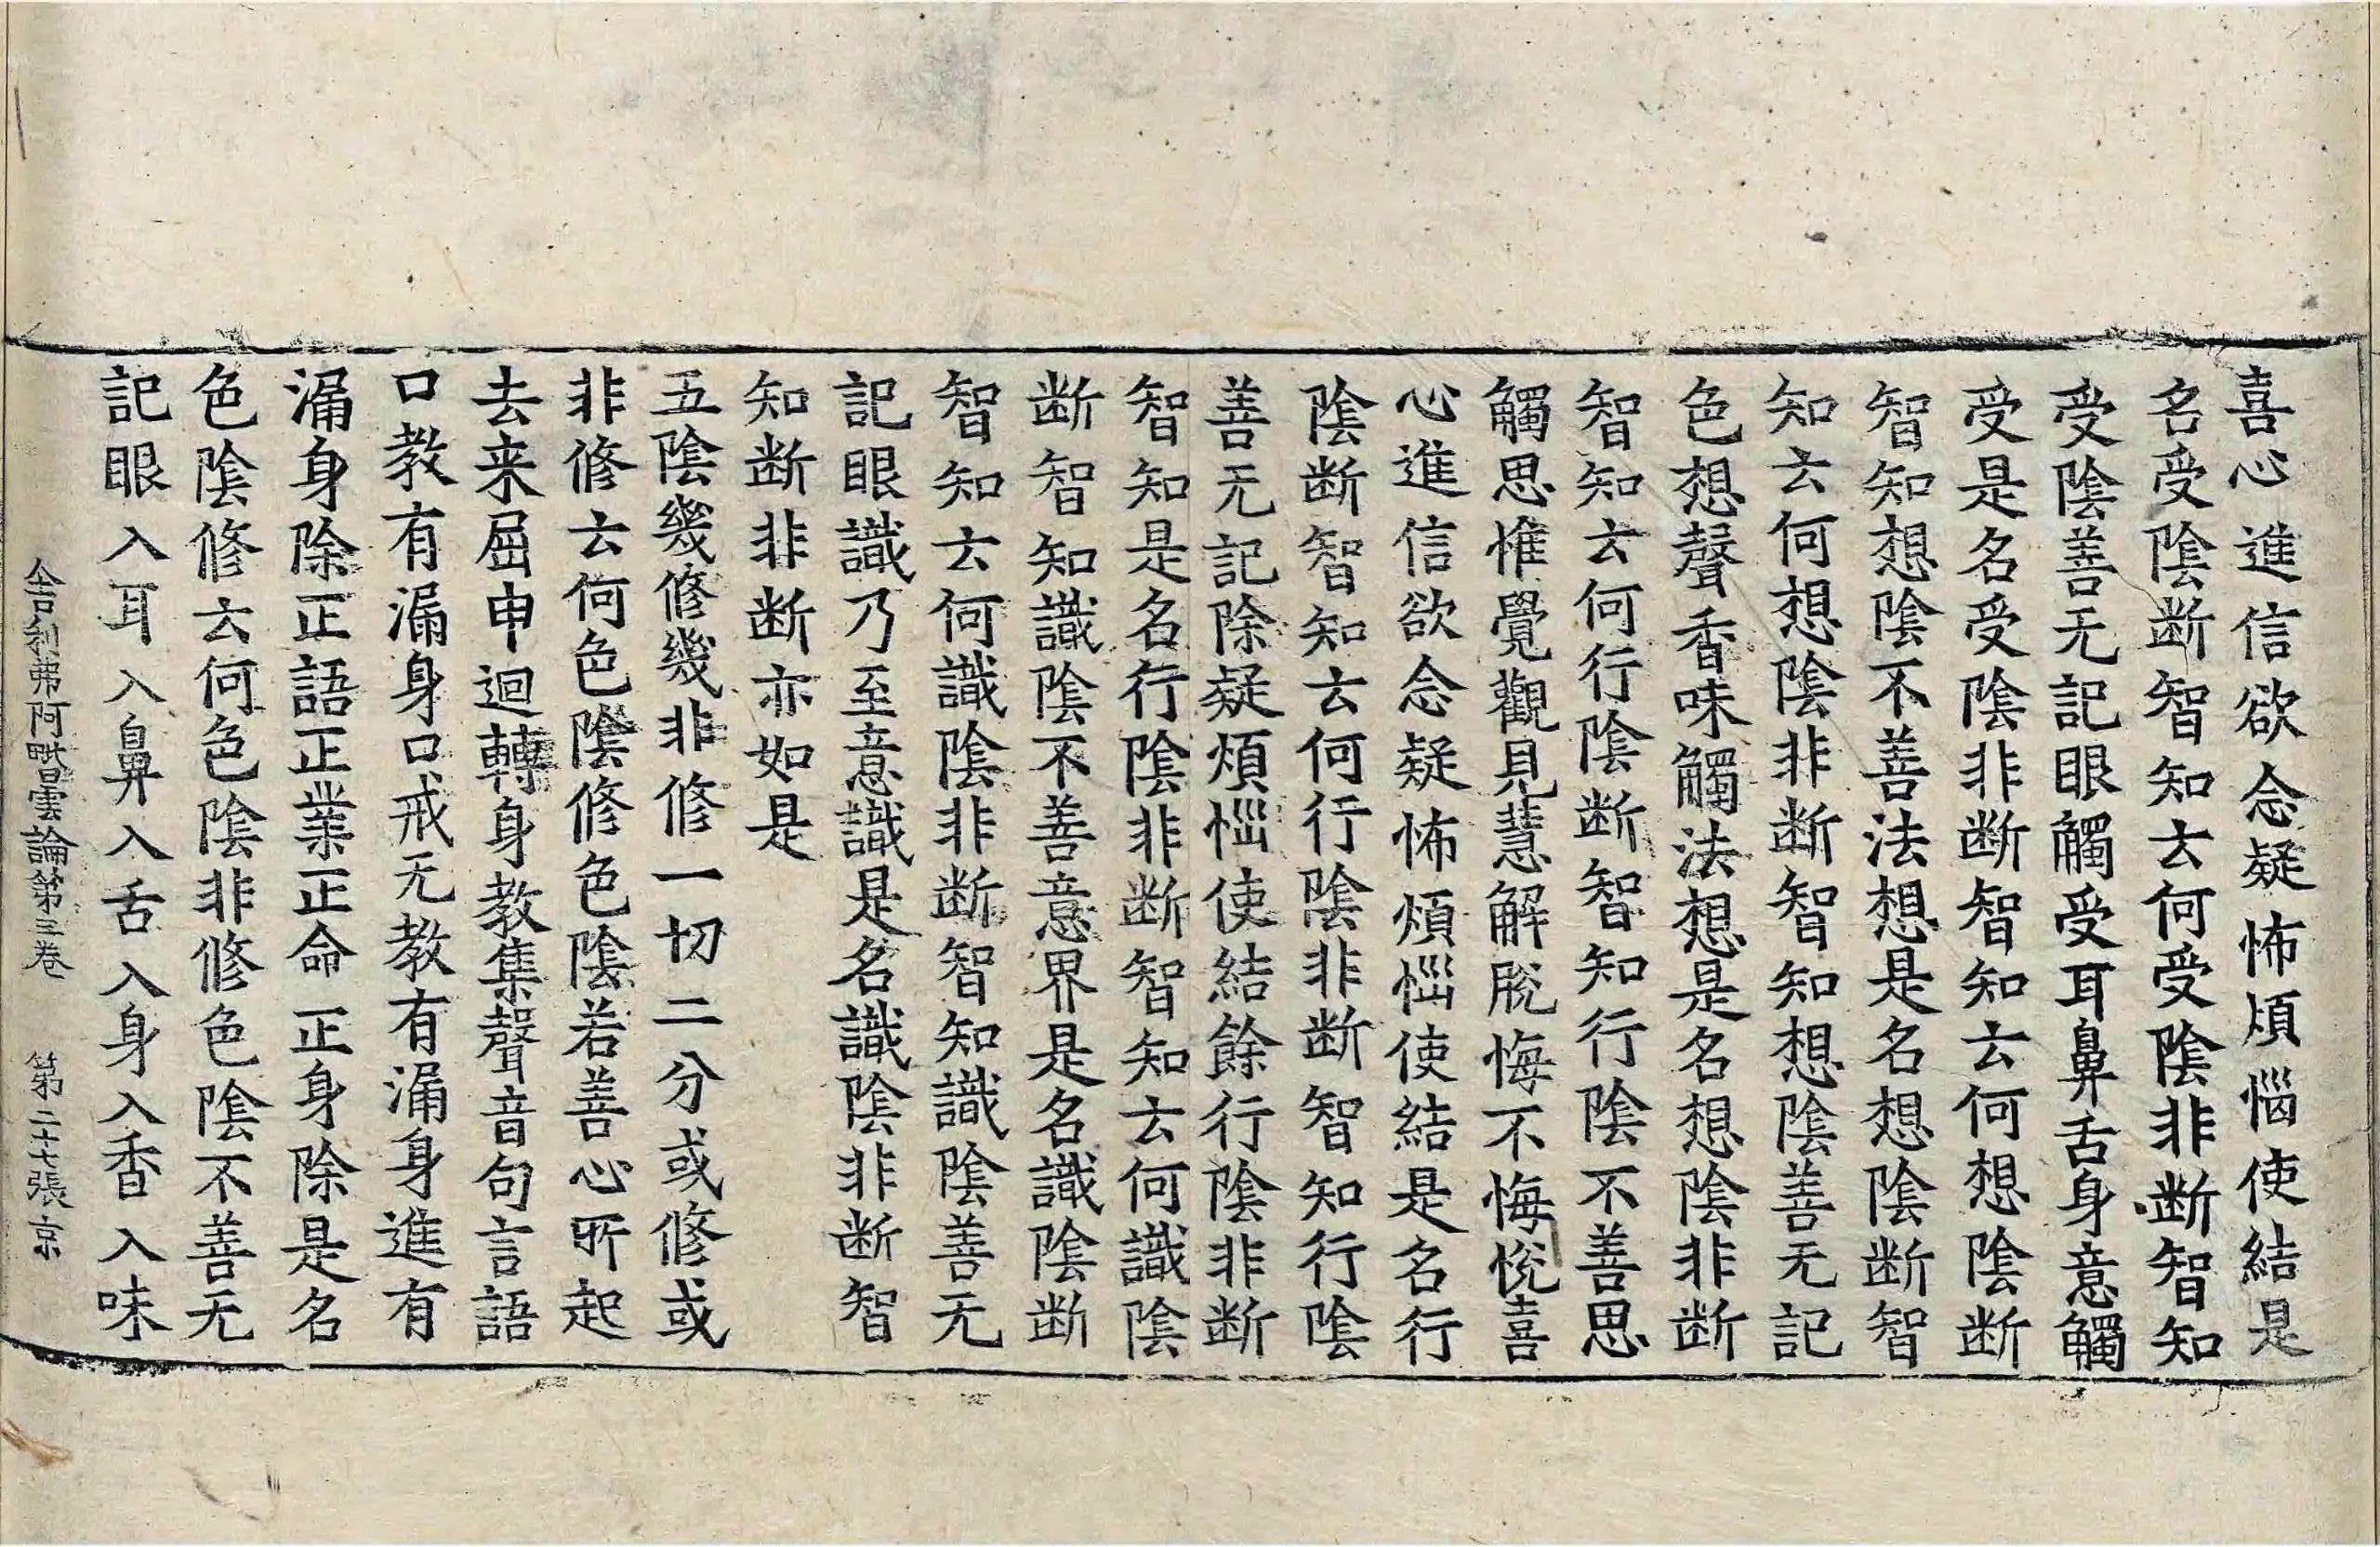 喜心進信欲念疑怖煩惱使結是
名受陰断智知云何受陰非断智知
受陰善无記眼觸受耳鼻舌身意觸
受是名受陰非断智知云何想陰断
智知想陰不善法想是名想陰断智
知云何想陰非断智知想陰善无記
色想聲香味觸法想是名想陰非断
智知云何行陰断智知行陰不善思
觸思惟覺觀見慧解脱悔不悔悅喜
心進信欲念疑怖煩惱使結是名行
陰断智知云何行陰非断智知行陰
善无記除疑煩惱使結餘行陰非断
智知是名行陰非断智知云何識陰
断智知識陰不善意界是名識陰断
智知云何識陰非断智知識陰善无
記眼識乃至意識是名識陰非断智
知断非断亦如是
五陰幾修幾非修一切二分或修或
非修云何色陰修色陰若善心所起
去来屈申迴轉身教集聲音句言語
口教有漏身口戒无教有漏身進有
漏身除正語正業正命正身除是名
色陰修云何色陰非修色陰不善无
記眼入耳入鼻入舌入身入香入味
舍利弗阿毗曇論第三卷　第二十七張京